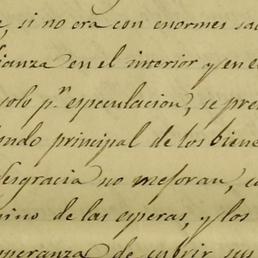 si no era con enormes sa
ianza en el interior y en e
solo pr. especulacion, se pre
ondo principal de los biene
desgracia no mejoran, c
ino de las esperas, y los
peranza de cubrir sus